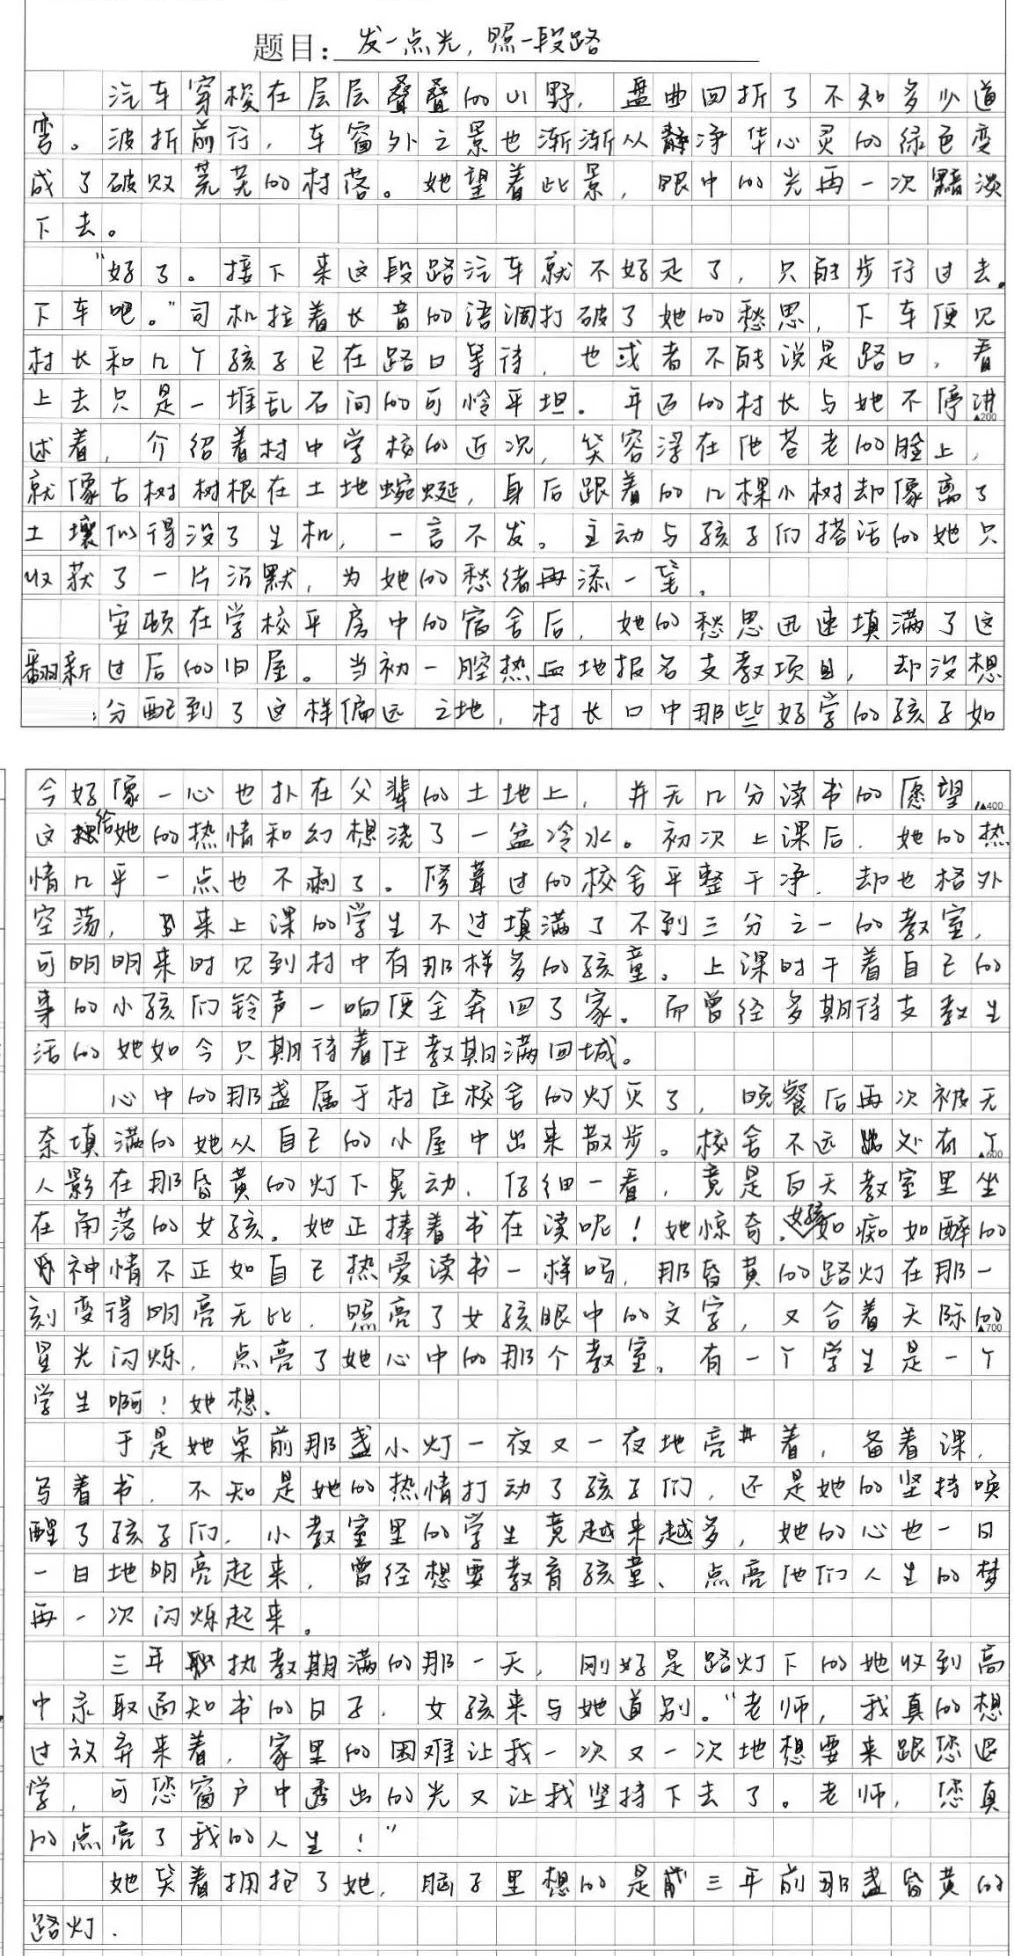 题目：发一点光，照一段路
汽车穿梭在层层叠叠的山野，盘曲回折了不知多少道
弯。波折前行，车窗外之景也渐渐从静净华心灵的绿色变
成了破败荒芜的村落。她望着此景，眼中的光再一次黯淡
下去。
"好了。接下来这段路汽车就不好走了，只能步行过去。
下车吧。"司机拉着长音的语调打破了她的愁思，下车便见
村长和几个孩子已在路口等待，也或者不能说是路口，看
上去只是一堆乱石间的可怜平坦。年迈的村长与她不停讲
▲200
述着，介绍着村中学校的近况，笑容浮在他苍老的脸上，
就像古树树根在土地蜿蜒，身后跟着的几棵小树却像离了
土壤似得没了生机，一言不发。主动与孩子们搭话的她只
收获了一片沉默，为她的愁绪再添一笔。
安顿在学校平房中的宿舍后，她的愁思迅速填满了这
翻新过后的旧屋。当初一腔热血地报名支教项目，却没想
分配到了这样偏远之地，村长口中那些好学的孩子如
今好像一心也扑在父辈的土地上，并无几分读书的愿望，
▲400
这给她的热情和幻想浇了一盆冷水。初次上课后，她的热
情几乎一点也不剩了。修葺过的校舍平整干净，却也格外
空荡，来上课的学生不过填满了不到三分之一的教室，
可明明来时见到村中有那样多的孩童。上课时干着自己的
事的小孩们铃声一响便全奔回了家。而曾经多期待支教生
活的她如今只期待着任教期满回城。
心中的那盏属于村庄校舍的灯灭了，晚餐后再次被无
奈填满的她从自己的小屋中出来散步。校舍不远处有个
▲600
人影在那昏黄的灯下晃动，仔细一看，竟是白天教室里坐
在角落的女孩。她正捧着书在读呢！她惊奇，女孩如痴如醉的
神情不正如自己热爱读书一样吗，那昏黄的路灯在那一
刻变得明亮无比，照亮了女孩眼中的文字，又合着天际的
▲700
星光闪烁，点亮了她心中的那个教室。有一个学生是一个
学生啊！她想。
于是她桌前那盏小灯一夜又一夜地亮着，备着课，
写着书，不知是她的热情打动了孩子们，还是她的坚持唤
醒了孩子们，小教室里的学生竟越来越多，她的心也一日
一日地明亮起来，曾经想要教育孩童、点亮他们人生的梦
再一次闪烁起来。
三年执教期满的那一天，刚好是路灯下的她收到高
中录取通知书的日子，女孩来与她道别。"老师，我真的想
过放弃来着，家里的困难让我一次又一次地想要来跟您退
学，可您窗户中透出的光又让我坚持下去了。老师，您真
的点亮了我的人生！"
她笑着拥抱了她，脑子里想的是三年前那盏昏黄的
路灯.